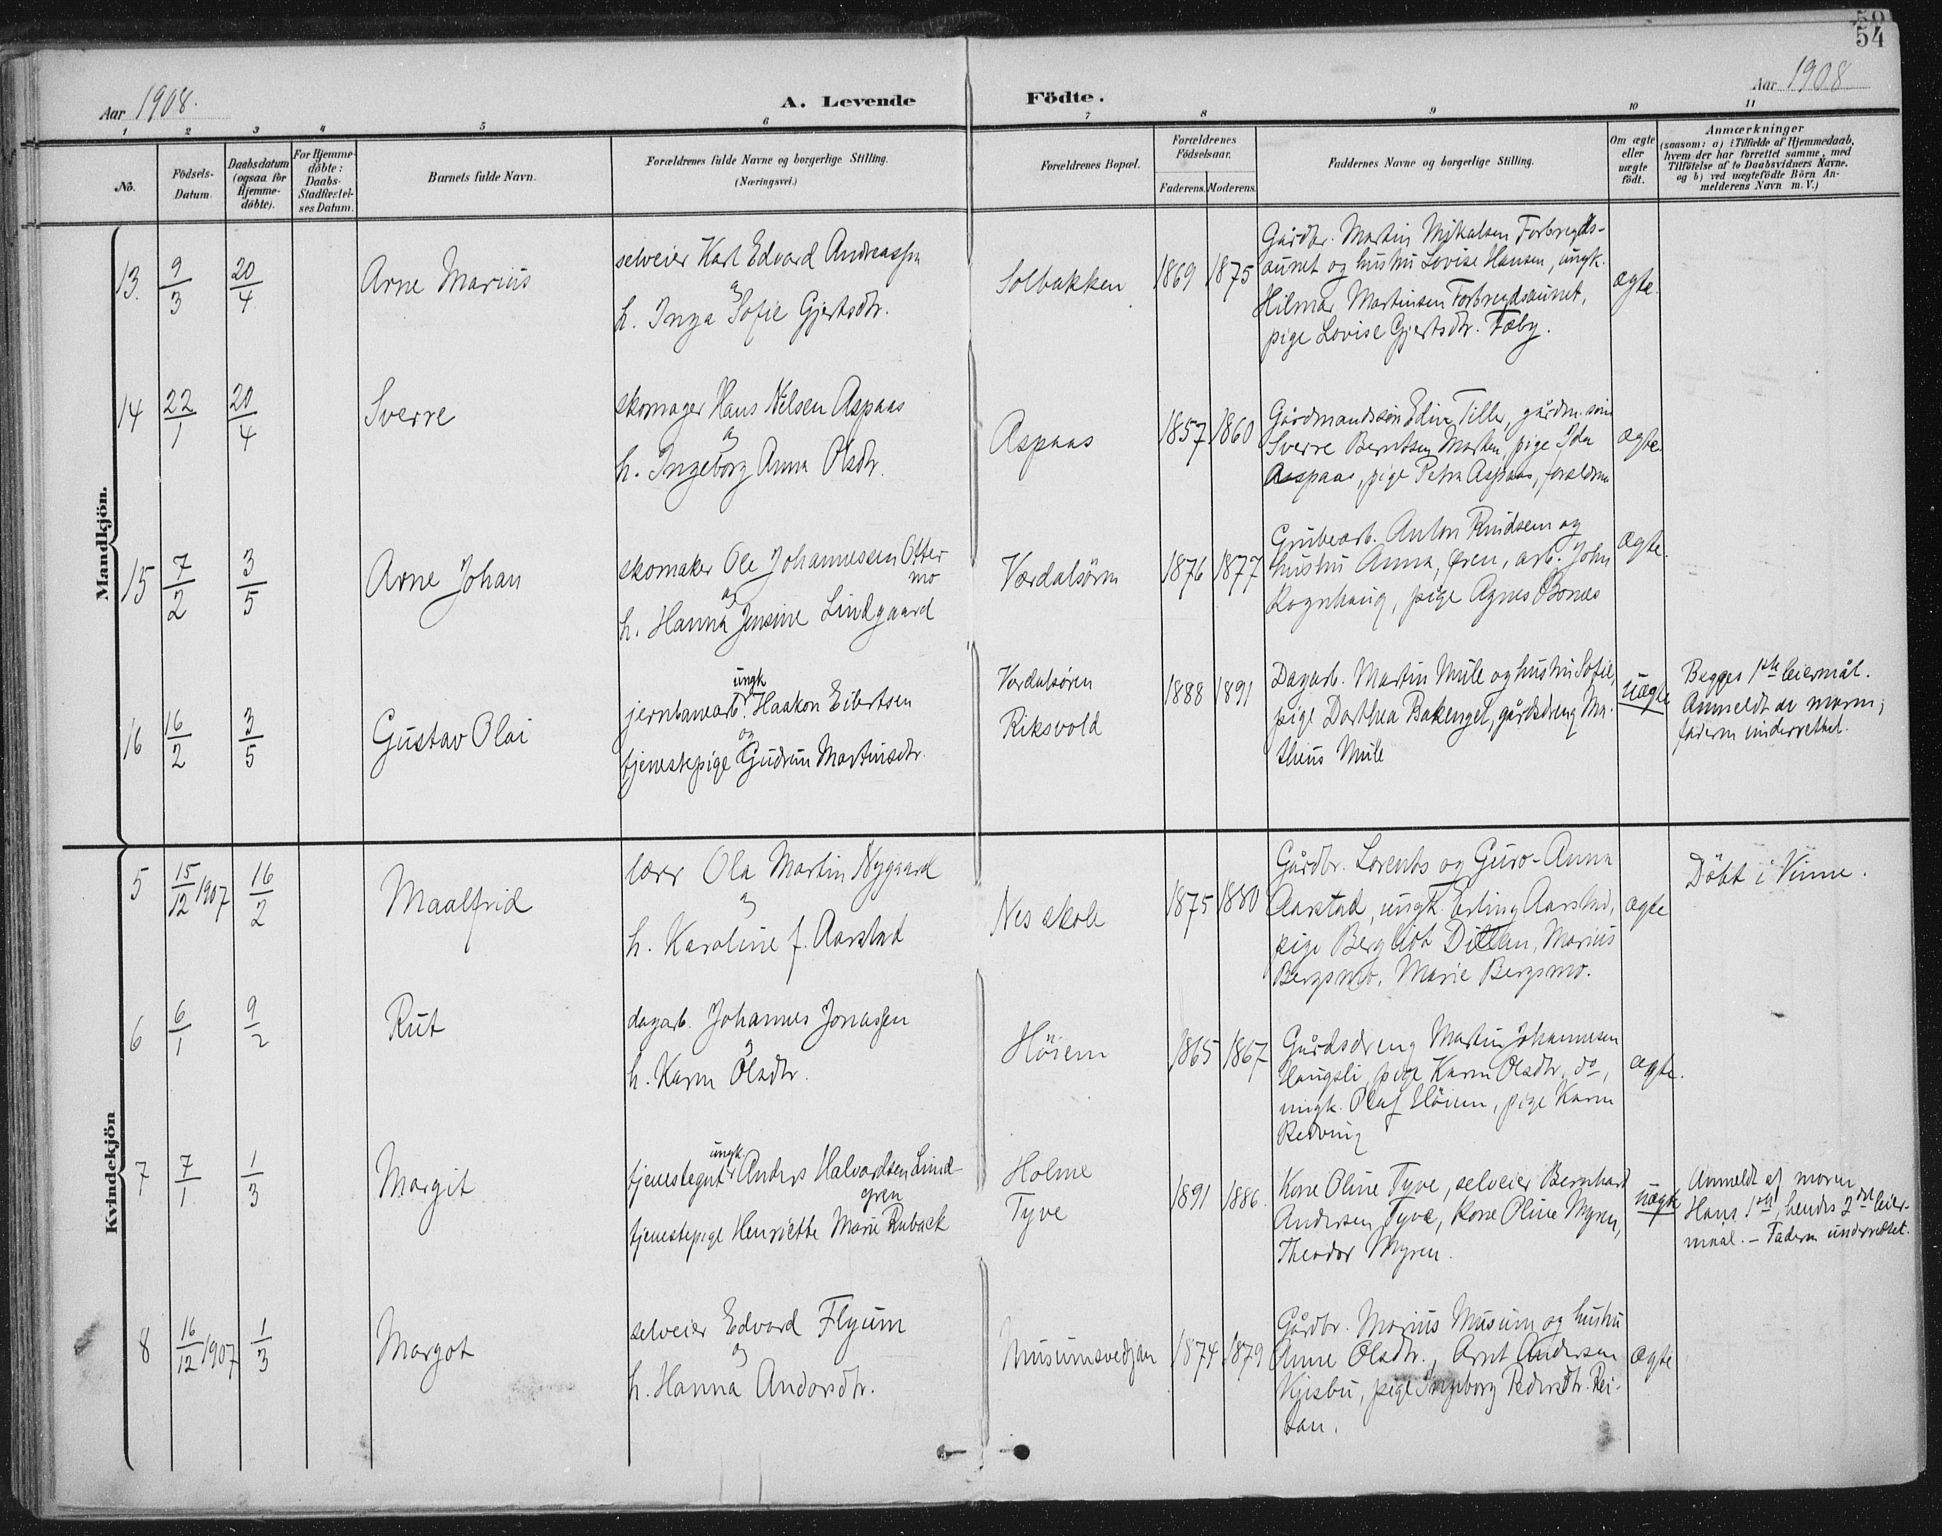 50
54
Aar 1908.
A. Levende Födte.
Aar 1908
1 2 3 4 5 6 7 8 9 10 11
No.
Födsels-
Datum.
Daabsdatum
(ogsaa for
Hjemme-
döbte).
For Hjemme-
döbte:
Daabs-
Stadfæstel-
ses Datum.
Barnets fulde Navn.
Forældrenes fulde Navne og borgerlige Stilling.
(Næringsvei.)
Forældrenes Bopæl.
Forældrenes
Födselsaar.
Faderens. Moderens.
Faddernes Navne og borgerlige Stilling.
Om ægte
eller
uægte
födt.
Anmærkninger
(saasom: a) i Tilfælde af Hjemmedaab,
hvem der har forrettet samme, med
Tilföielse af to Daabsvidners Navne.
og b) ved uægtefödte Börn An-
melderens Navn m. V.)
Mandkjön.
13. 9/3 20/4 Arne Marius
selveier Karl Edvard Andreassen
og
h. Inga Sofie Gjertsdtr.
Solbakken 1869 1875
Gårdbr. Martin Mikalsen Forbregds-
aunet og hustru Lovise Hansen, ungk.
Hilmar Martinsen Forbregdsaunet,
pige Lovise Gjertsdtr. Fæby.
ægte.
14 22/1 20/4 Sverre
skomager Hans Nilsen Aspaas
og
h. Ingeborg Anna Olsdtr.
Aspaas 1857 1860
Gårdmandssön Edin Tiller, gårdm. sön
Sverre Berntsen Marken, pige Ida
Aspaas, pige Petra Aspaas, forældrene
ægte.
15 7/2 3/5 Arne Johan
skomaker Ole Johannessen Otter-
mo
og
h. Hanna Jensine Lindgaard
Værdalsörn 1876 1877
Grubearb. Anton Knudsen og
hustru Anna, Ören, arb. John
Rognhaug, pige Agnes Bones
ægte.
16 16/2 3/5 Gustav Olai
ungk
jernbanearb. Haakon Eibertsen
og
tjenestepige Gudrun Martinsdtr.
Værdalsøren
Riksvold
1888 1891
Dagarb. Martin Mule og hustru Sofie,
pige Dorthea Bakenget, gårdsdreng Ma-
theus Mule
uægte
Begges 1ste leiermål.
Anmeldt av moren;
faderen underrettet.
Kvindekjön
5 15/12 1907 16/2 Maalfrid
lærer Ola Martin Nygaard
og
h. Karoline f. Aarstad
Nes skole 1875 1880
Gårdbr. Lorents og Guro-Anna
Aarstad, ungk. Erling Aarstad,
pige Bergliot Dillan, Marius
Bergsmo, Marie Bergsmo.
ægte
Döbt i Vinne.
6 6/1 9/2 Rut
dagarb. Johannes Jonassen
og
h. Karen Olsdtr.
Höiem 1865 1867
Gårdsdreng Martin Johannesen
Haugsli, pige Karen Olsdtr, do,
ungk. Olaf Höiem, pige Karen
ægte.
7 7/1 1/3 Margit
ungk.
tjenestegut Anders Halvardsen Lind-
gren
tjenestepige Henriette Marie Ruback
Holme
Tyve
1891 1886.
Kone Oline Tyve, selveier Bernhard
Andersen Tyve, kone Oline Myren,
Theodor Myren.
uægte
Anmeldt af moren
Hans 1ste, hendes 2det leier-
maal. – Faderen underrettet.
8 16/12 1907 1/3 Margot
selveier Edvard Flyum
og
h. Hanna Andorsdtr.
Musumsvedjan 1874 1879
Gårdbr. Marius Musum og hustru
Anne Olsdtr., Arnt Andersen
Kjesbu, pige Ingeborg Pedersdtr. Rei-
tan.
ægte